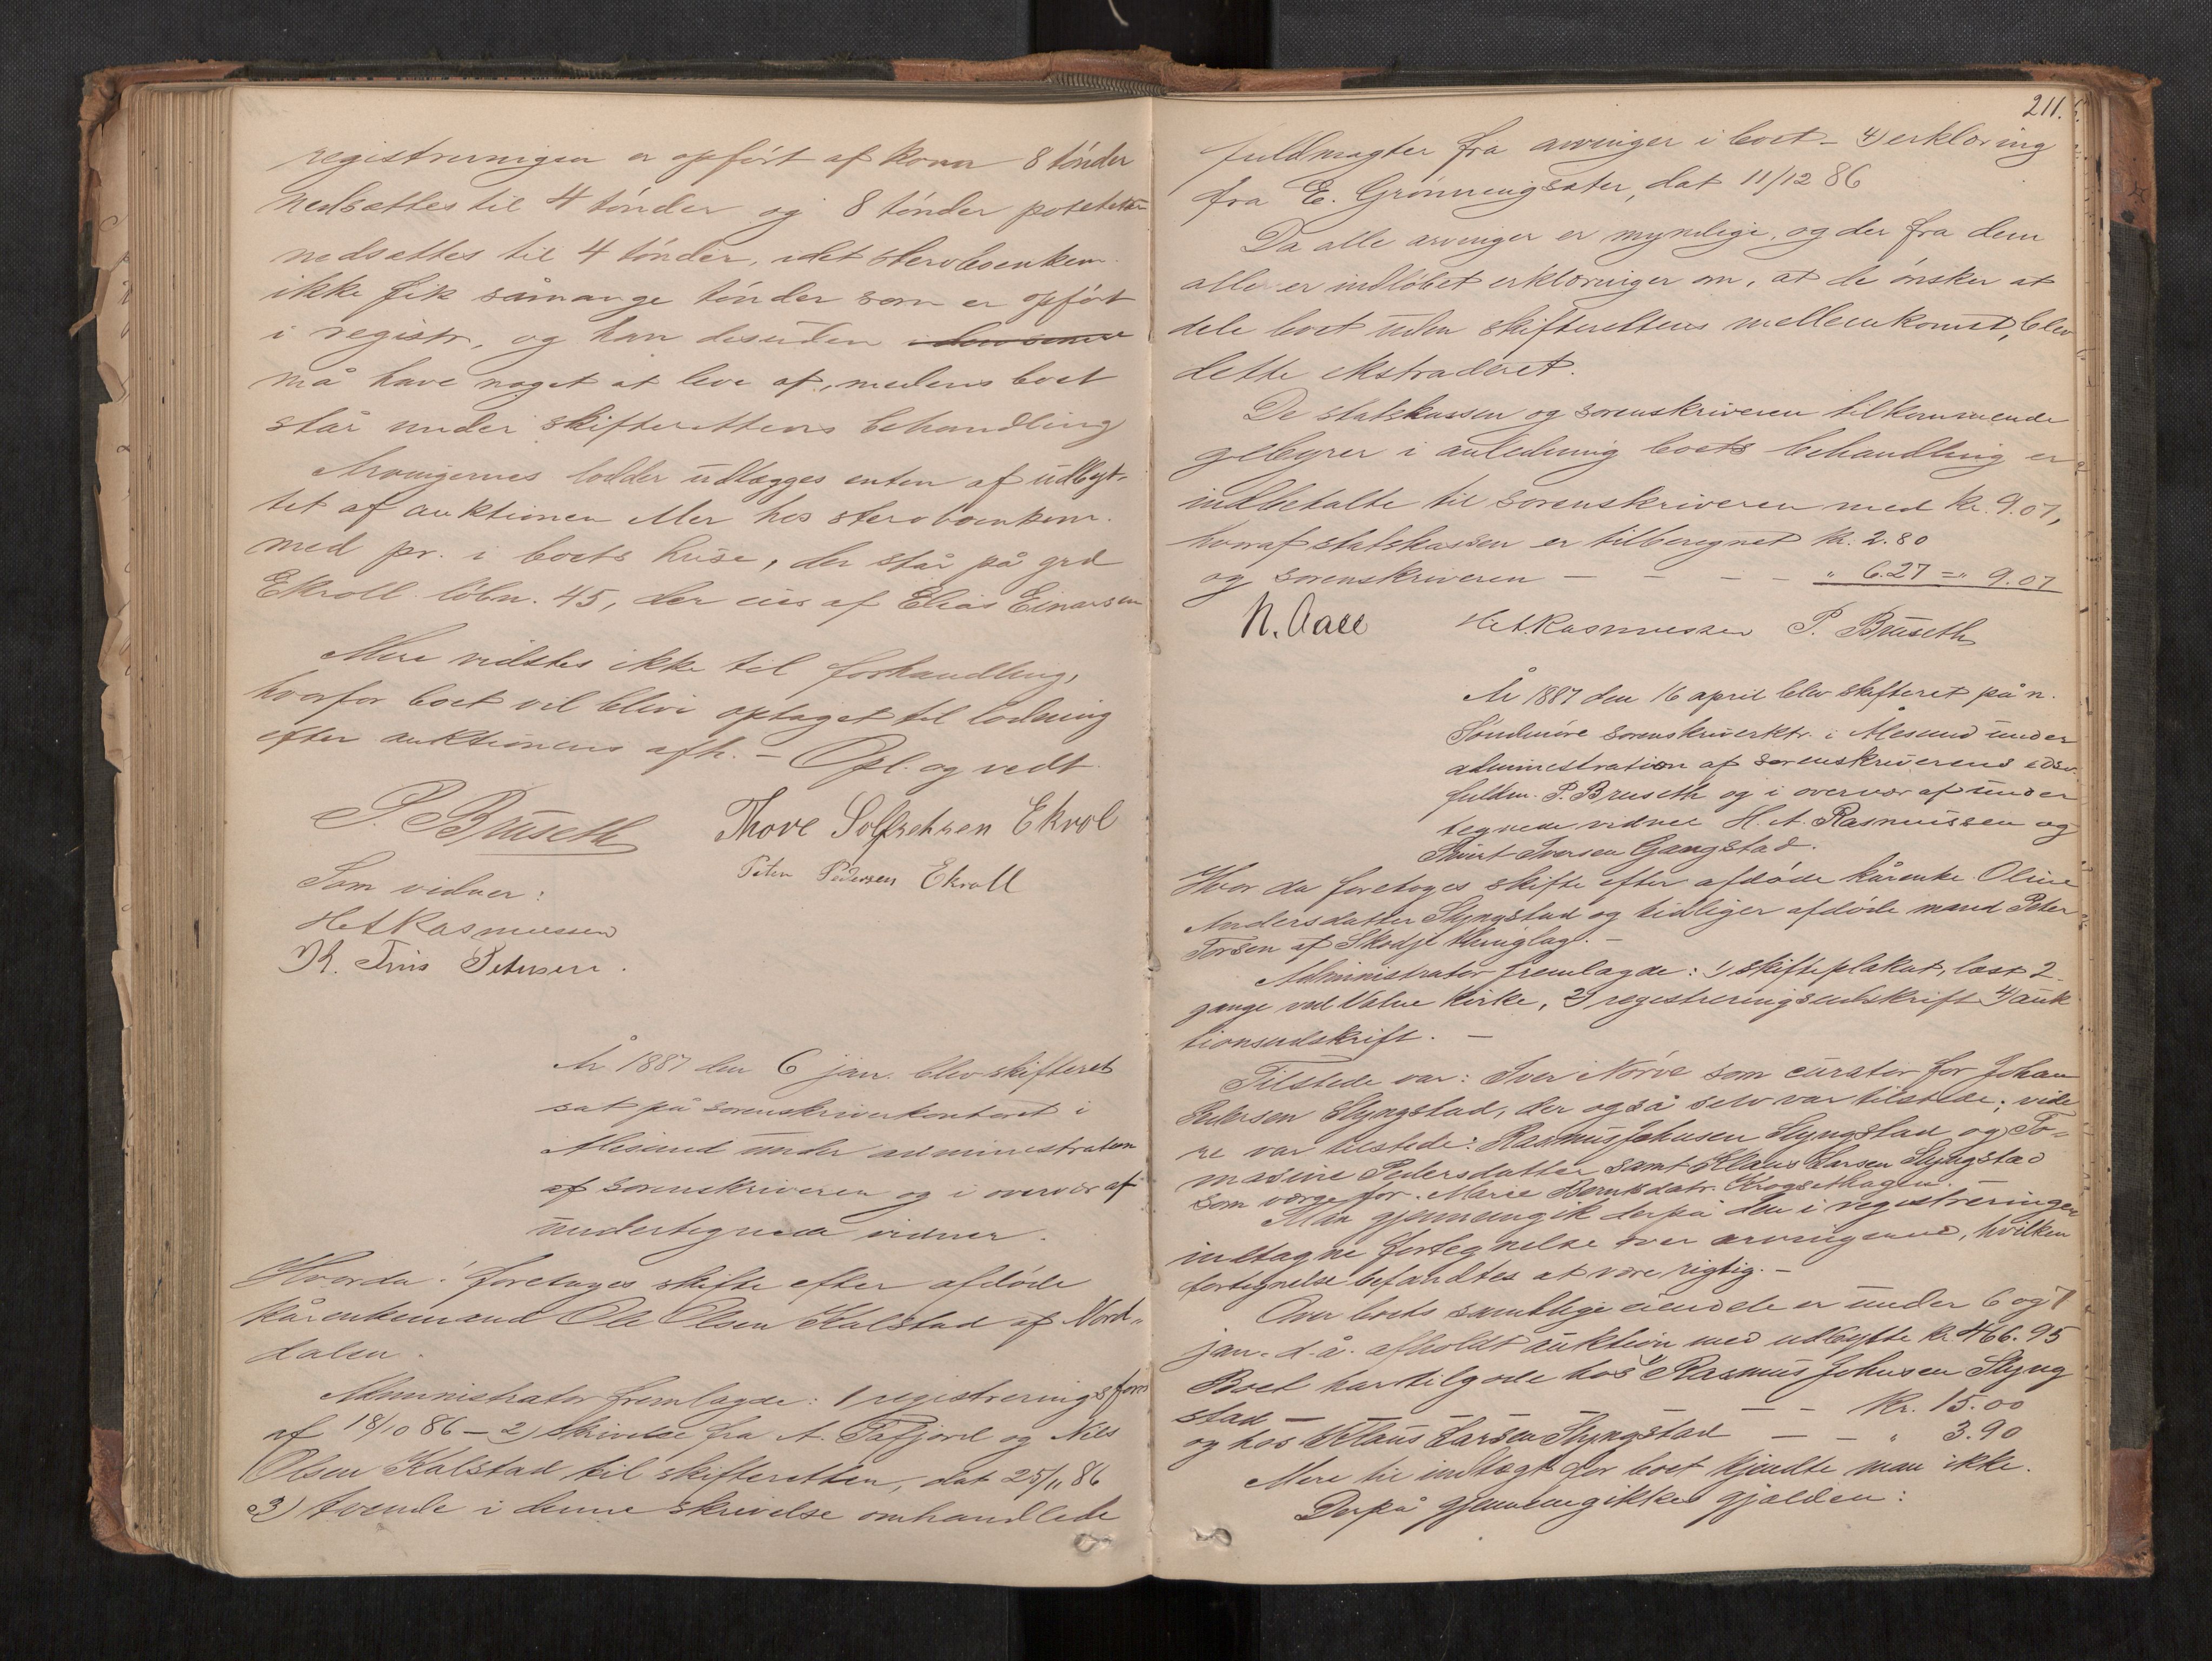 registreringen er opført af korn 8 tönder
nedsættes til 4 tönder og 8 tönder poteter
nedsættes til 4 tönder, idet stervboenkem.
ikke fik såmange tönder som er opført
i registr., og han desuden
må have noget at leve af, medens boet
står under skifterettens behandling
Arvingernes lodder udlægges enten af udbyt-
tet af auktionen eller hos stervboenkem.
med pr. i boets huse, der står på grd
Ekroll löbn. 45, der eies af Elias Einarsen
Mere vidstes ikke til forhandling,
hvorfor boet vil blive optaget til lodning
efter auktionens afh. - Opl. og vedt.
P. Bruseth Thore Solfrehsen Ekrol
Peter Pedersen Ekroll
Som vidner:
H A Rasmussen
K. Friis Petersen.
År 1887 den 6 jan. blev skifteret
sat på sorenskriverkontoret i
Ålesund under administration
af sorenskriveren og i overvær af
undertegnede vidner.
Hvorda: foretoges skifte efter afdöde
kårenkemand Ole Olsen Kalstad af Nord-
dalen.
Administrator fremlagde: 1 registreringsforr
af 18/10 86 - 2) skrivelse fra A. Tafjord og Nils
Olsen Kalstad til skifteretten, dat 25/11 86
3) tvende i denne skrivelse omhandlede
211.
fuldmagter fra arvinger i boet - 4) erklæring
fra E. Grönningsæter, dat 11/12 86
Da alle arvinger er myndige, og der fra dem
alle er indlöbet erklæringer om, at de önsker at
dele boet uden skifterettens mellemkomst, blev
dette ekstraderet.
De statskassen og sorenskriveren tilkommende
gebyrer i anledning boets behandling er
indbetalte til sorenskriveren med kr. 9.07,
hvoraf statskassen er tilberegnet kr. 2.80
og sorenskriveren - - - - " 6.27 = " 9.07
N. Aall H A Rasmussen P. Bruseth
År 1887 den 16 april blev skifteret på n.
Söndmöre sorenskriverktr. i Ålesund under
administration af sorenskriverens edsv.
fuldm. P. Bruseth og i overvær af under
tegnede vidner H. A. Rasmussen og
Sivert Iversen Gangstad.
Hvor da foretoges skifte efter afdöde kårenke Oline
Andersdatter Slyngstad og tidliger afdöde mand Peter
Torsen af Skodje thinglag. -
Administrator fremlagde: 1) skifteplakat, læst 2
gange ved Vatne kirke, 2) registreringsudskrift 4) auk
tionsudskrift. -
Tilstede var: Iver Nörve som curator for Johan
Pedersen Slyngstad, der også selv var tilstede; vide
re var tilstede: Rasmus Johnsen Slyngstad og To-
masine Pedersdatter samt Klaus Larsen Slyngstad
som værge for Marie Berntsdatr. Krogsethagen.
Man gjennemgik derpå den i registreringen
indtagne fortegnelse over arvingerne, hvilken
fortegnelse befandtes at være rigtig. -
Over boets samtlige eiendele er under 6 og 7
jan. d. å. afholdt auktion med udbytte kr. 466.95
Boet har tilgode hos Rasmus Johnsen Slyng
stad - - - - - - kr. 15.00
og hos Klaus Larsen Slyngstad - - " 3.90
Mere til indtægt for boet kjendte man ikke.
Derpå gjennemgikkes gjælden: